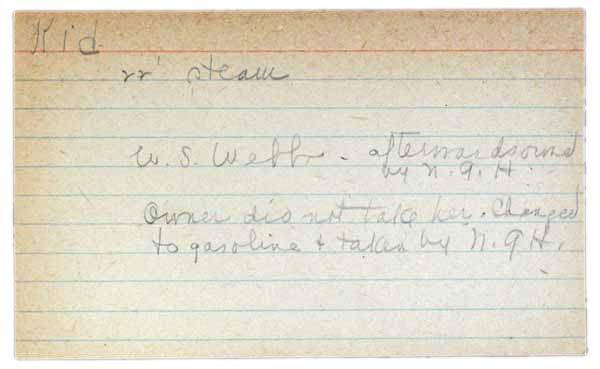 Kid
22' steam
W. S. Webb - afterwards owned
by N. G. H.
Owner did not take her. Changed
to gasoline & taken by N. G H.